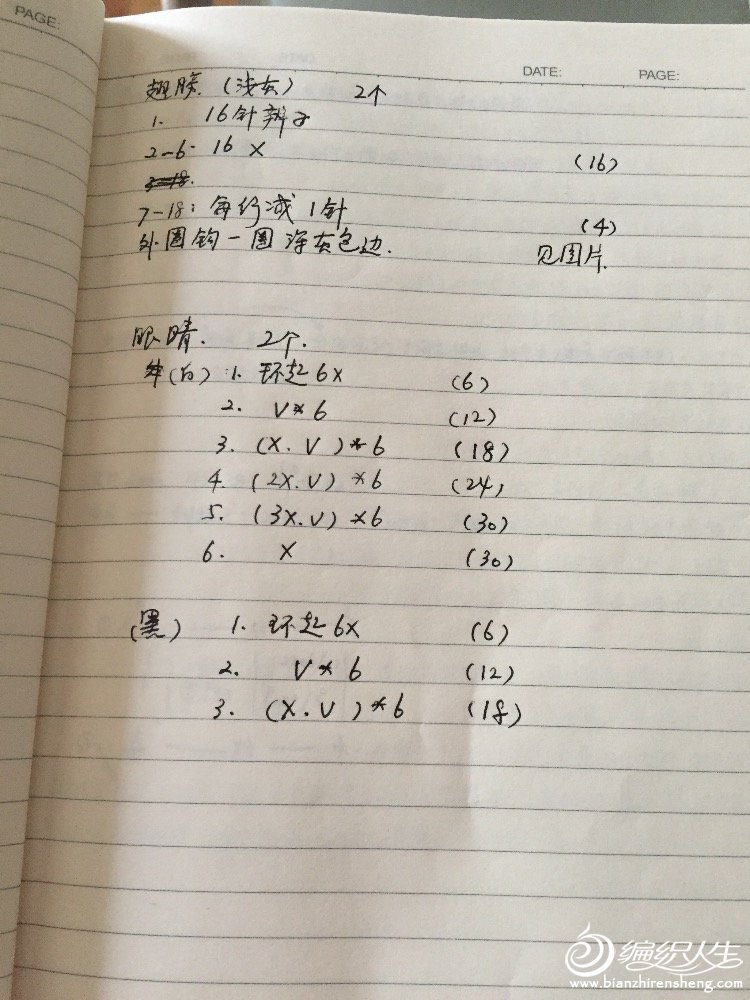 PAGE:
DATE: PAGE:
翅膀.（浅灰） 2个
1. 16针辫子
2-6. 16 X (16)
7-18: 每行减1针 (4)
外圈钩一圈深灰包边. 见图片.
眼睛. 2个.
(白): 1. 环起6X (6)
2. V*6 (12)
3. (X.V)*6 (18)
4. (2X.V)*6 (24)
5. (3X.V)*6 (30)
6. X (30)
(黑) 1. 环起6X (6)
2. V*6 (12)
3. (X.V)*6 (18)
编织人生
www.bianzhirensheng.com